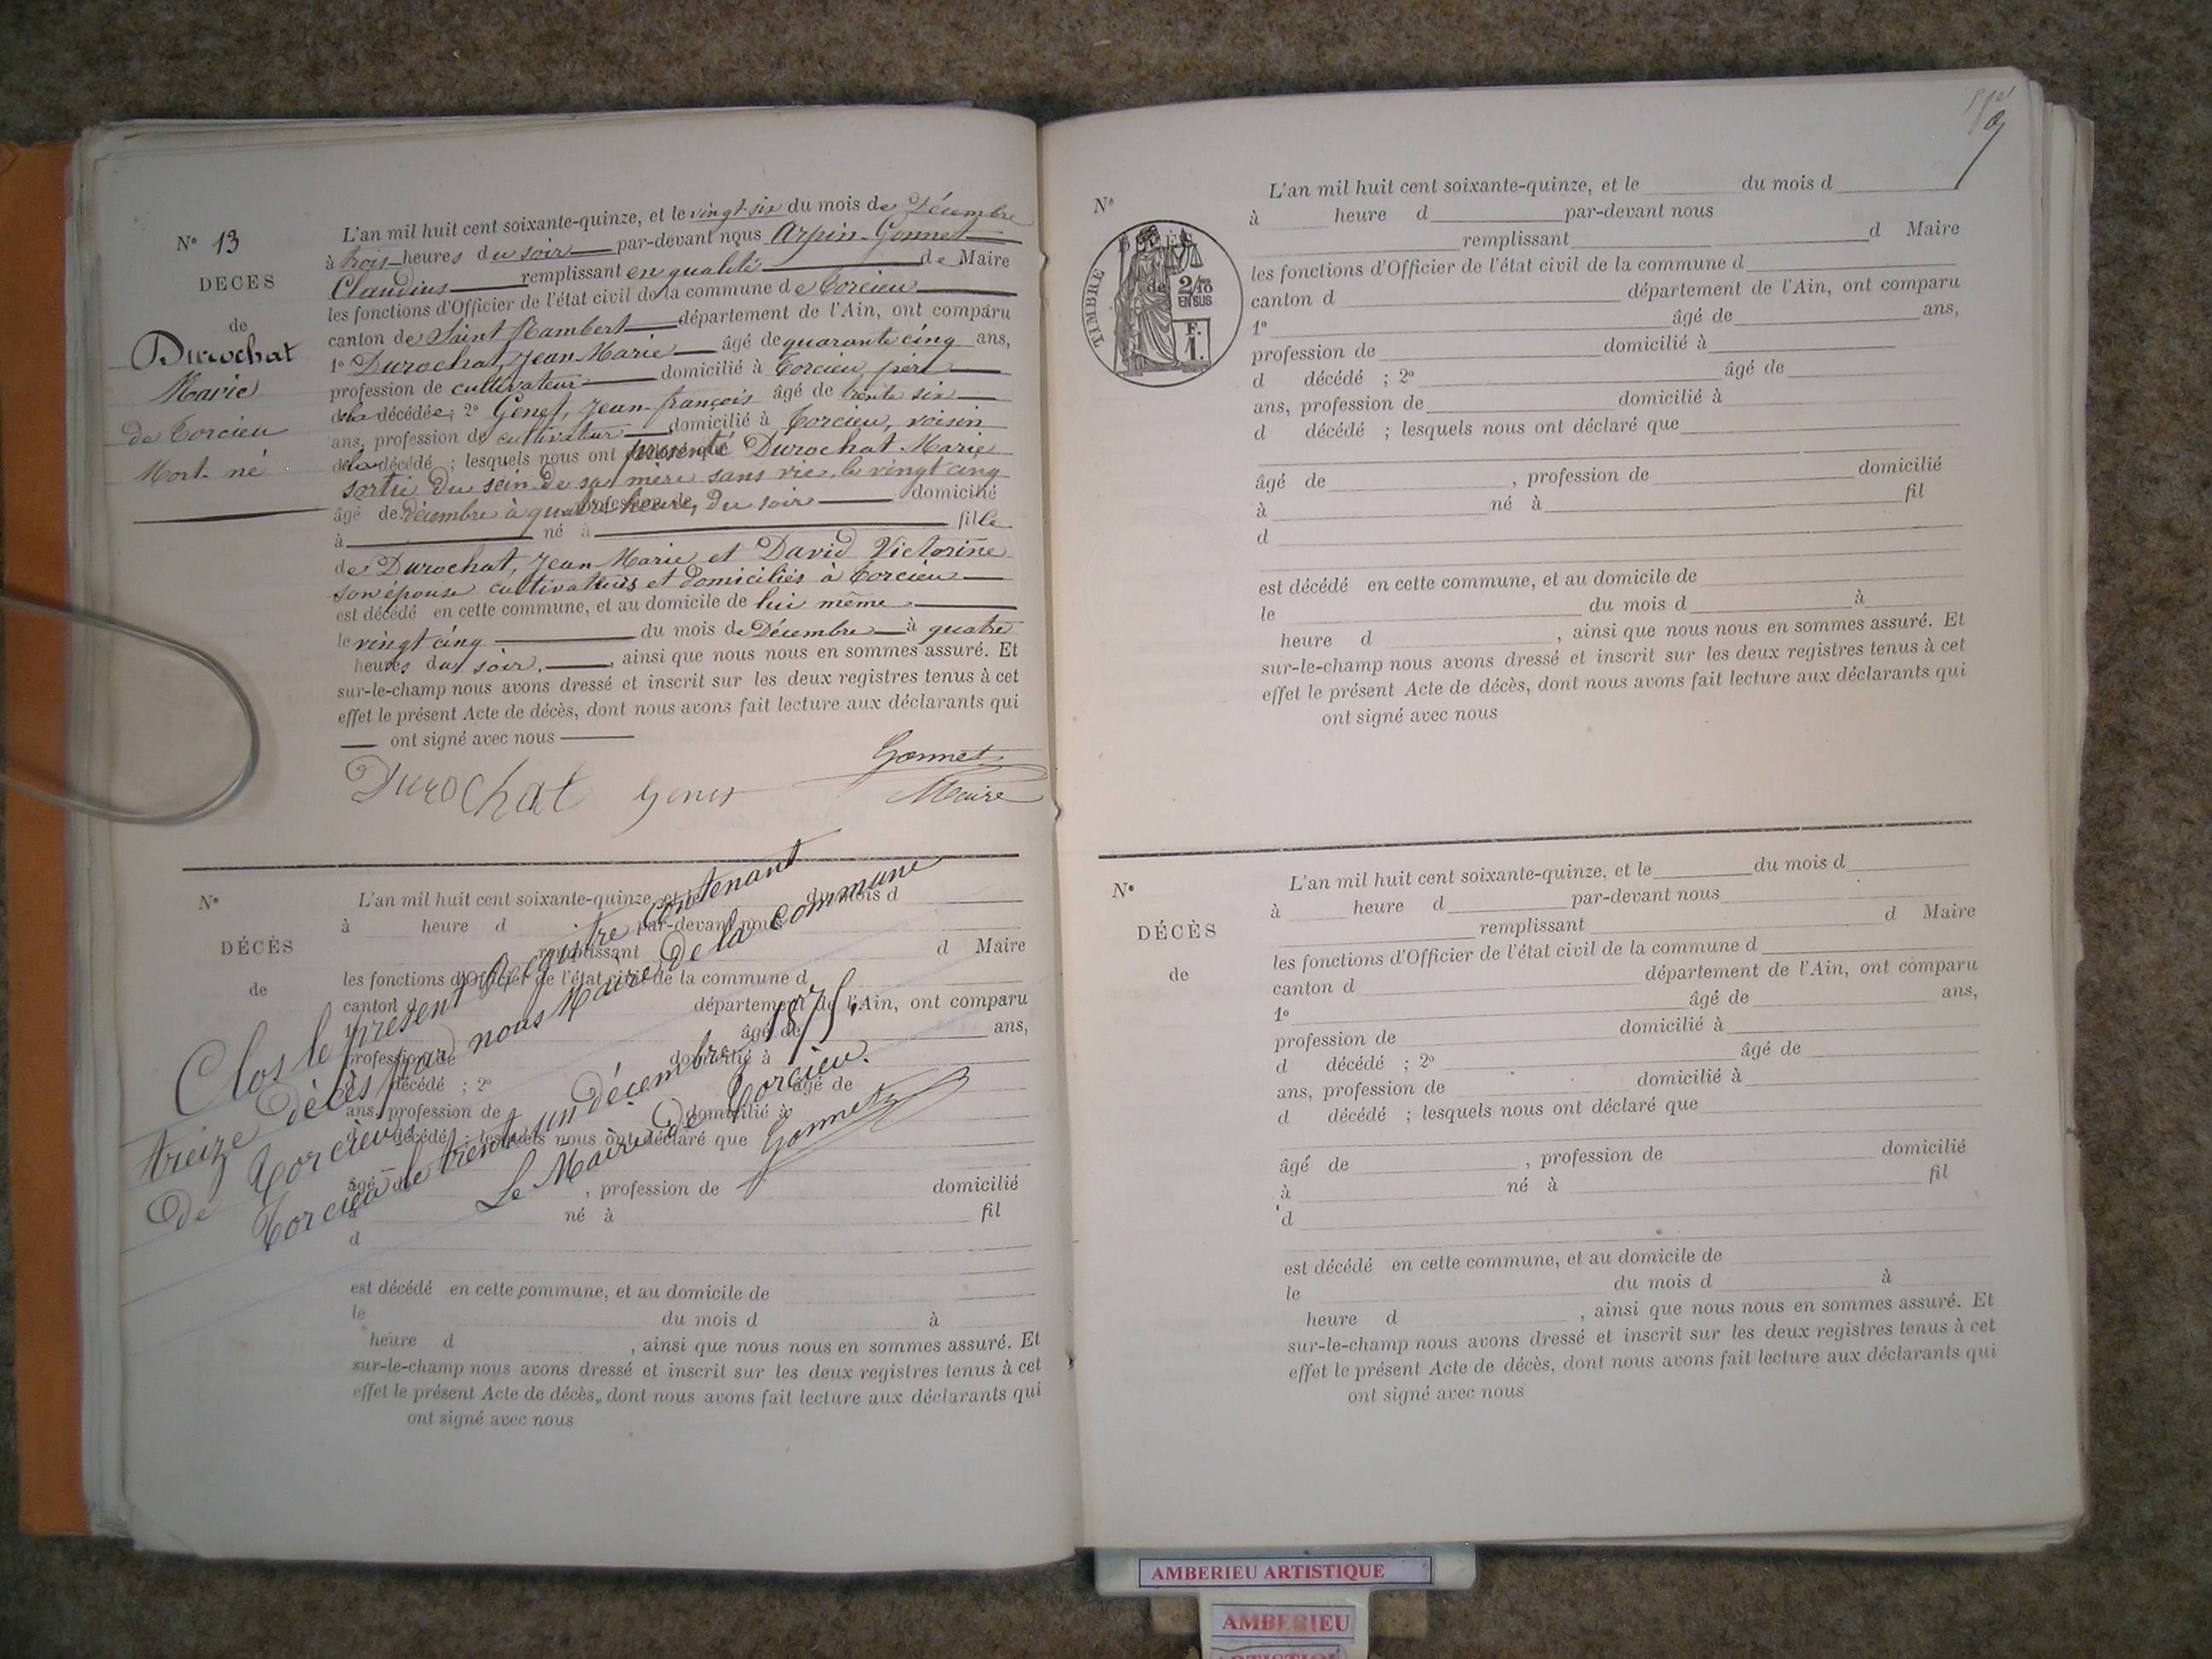 N° 13
DÉCÈS
de
Durochat
Marie
de Torcieu
Mort-né
L'an mil huit cent soixante-quinze, et le vingt-six du mois de Décembre
à trois heures du soir par-devant nous Arpin-Gonnet
Claudius remplissant en qualité de Maire
les fonctions d'Officier de l'état civil de la commune de Torcieu
canton de Saint Rambert département de l'Ain, ont comparu
1° Durochat, Jean-Marie âgé de quarante cinq ans,
profession de cultivateur domicilié à Torcieu, père
de la décédée; 2° Genet, Jean-françois âgé de trente six
ans, profession de cultivateur domicilié à Torcieu, voisin
de la décédé ; lesquels nous ont présenté Durochat Marie
sortie du sein de sa mère sans vie, le vingt cinq
âgé de décembre à quatre heures, du soir profession de domicilié
à né à fille
de Durochat, Jean-Marie et David Victorine
son épouse cultivateurs et domiciliés à Torcieu
est décédé en cette commune, et au domicile de lui même
le vingt cinq du mois de Décembre à quatre
heures du soir, ainsi que nous nous en sommes assuré. Et
sur-le-champ nous avons dressé et inscrit sur les deux registres tenus à cet
effet le présent Acte de décès, dont nous avons fait lecture aux déclarants qui
ont signé avec nous
Durochat Genet Gonnet
Maire
N°
DÉCÈS
de
L'an mil huit cent soixante-quinze, et le du mois d
à heure d par-devant nous
remplissant d Maire
les fonctions d'Officier de l'état civil de la commune d
canton d département de l'Ain, ont comparu
1° âgé de ans,
profession de domicilié à
d décédé ; 2° âgé de
ans, profession de domicilié à
d décédé ; lesquels nous ont déclaré que
âgé de , profession de domicilié
à né à fil
d
est décédé en cette commune, et au domicile de
le du mois d à
heure d , ainsi que nous nous en sommes assuré. Et
sur-le-champ nous avons dressé et inscrit sur les deux registres tenus à cet
effet le présent Acte de décès, dont nous avons fait lecture aux déclarants qui
ont signé avec nous
Clos le présent Registre contenant
treize décès par nous Maire de la commune
de Torcieu
Torcieu le trente un décembre 1875.
Le Maire de Torcieu.
Gonnet
9
N°
DÉCÈS
de
TIMBRE
2/10
EN SUS
F.
1.
L'an mil huit cent soixante-quinze, et le du mois d
à heure d par-devant nous
remplissant d Maire
les fonctions d'Officier de l'état civil de la commune d
canton d département de l'Ain, ont comparu
1° âgé de ans,
profession de domicilié à
d décédé ; 2° âgé de
ans, profession de domicilié à
d décédé ; lesquels nous ont déclaré que
âgé de , profession de domicilié
à né à fil
d
est décédé en cette commune, et au domicile de
le du mois d à
heure d , ainsi que nous nous en sommes assuré. Et
sur-le-champ nous avons dressé et inscrit sur les deux registres tenus à cet
effet le présent Acte de décès, dont nous avons fait lecture aux déclarants qui
ont signé avec nous
N°
DÉCÈS
de
L'an mil huit cent soixante-quinze, et le du mois d
à heure d par-devant nous
remplissant d Maire
les fonctions d'Officier de l'état civil de la commune d
canton d département de l'Ain, ont comparu
1° âgé de ans,
profession de domicilié à
d décédé ; 2° âgé de
ans, profession de domicilié à
d décédé ; lesquels nous ont déclaré que
âgé de , profession de domicilié
à né à fil
d
est décédé en cette commune, et au domicile de
le du mois d à
heure d , ainsi que nous nous en sommes assuré. Et
sur-le-champ nous avons dressé et inscrit sur les deux registres tenus à cet
effet le présent Acte de décès, dont nous avons fait lecture aux déclarants qui
ont signé avec nous
AMBERIEU ARTISTIQUE
AMBERIEU
ARTISTIQUE